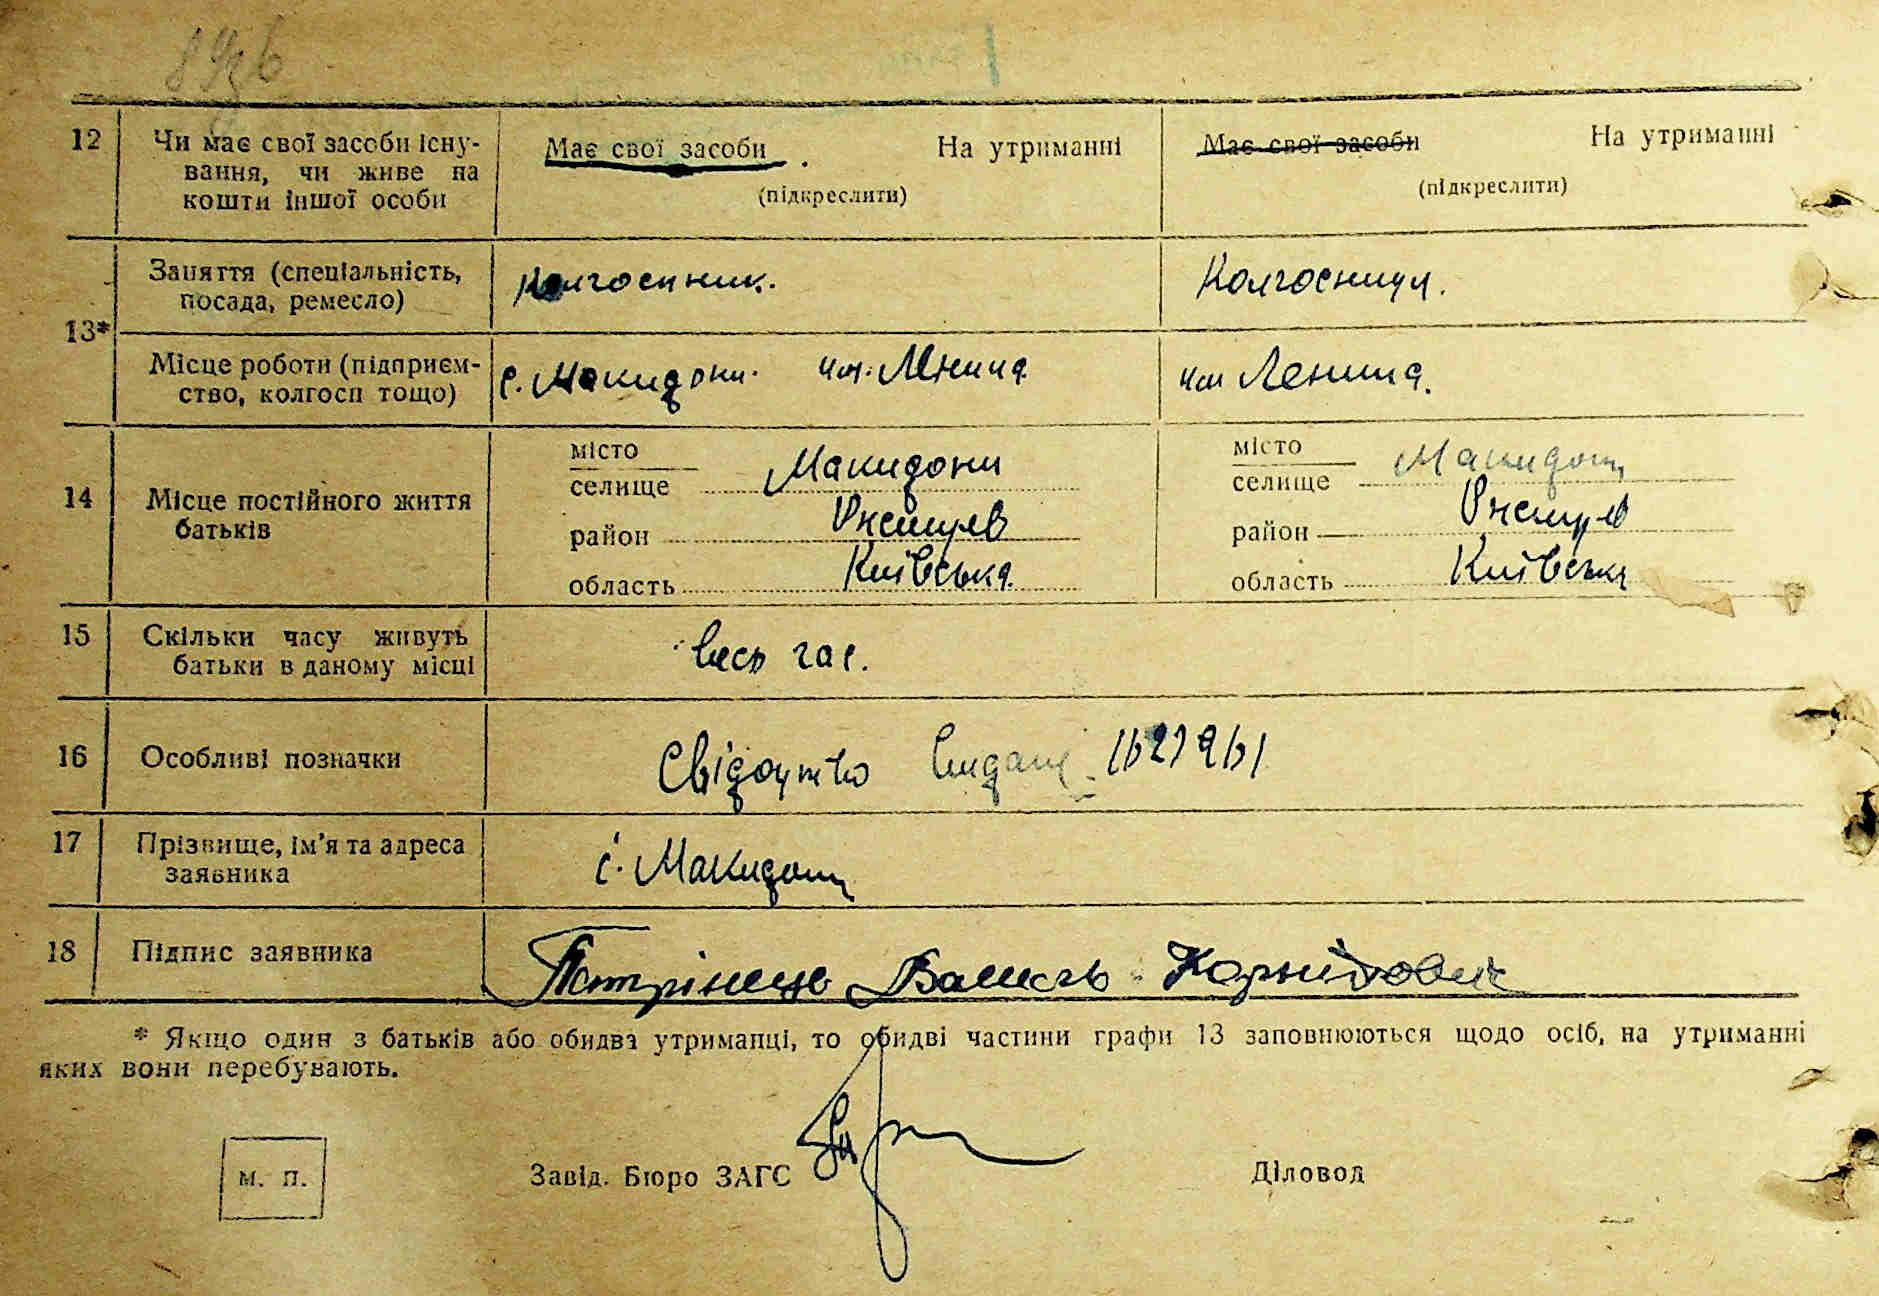 12 Чи має свої засоби існу-
вання, чи живе на
кошти іншої особи
Має свої засоби. На утриманні
(підкреслити)
Має свої засоби На утриманні
(підкреслити)
13*
Заняття (спеціальність,
посада, ремесло)
Колгоспник.
Колгоспниця.
Місце роботи (підприєм-
ство, колгосп тощо)
с. Макидони. им. Леніна
им Леніна.
14 Місце постійного життя
батьків
місто
селище Макидони
район
область Київська
місто
селище Макидони
район
область Київська
15 Скільки часу живуть
батьки в даному місці
весь час.
16 Особливі позначки
Свідоцтво видані
17 Прізвище, ім'я та адреса
заявника
с. Макидони
18 Підпис заявника
Василь
* Якщо один з батьків або обидва утриманці, то обидві частини графи 13 заповнюються щодо осіб, на утриманні
яких вони перебувають.
М. П.
Завід. Бюро ЗАГС
Діловод